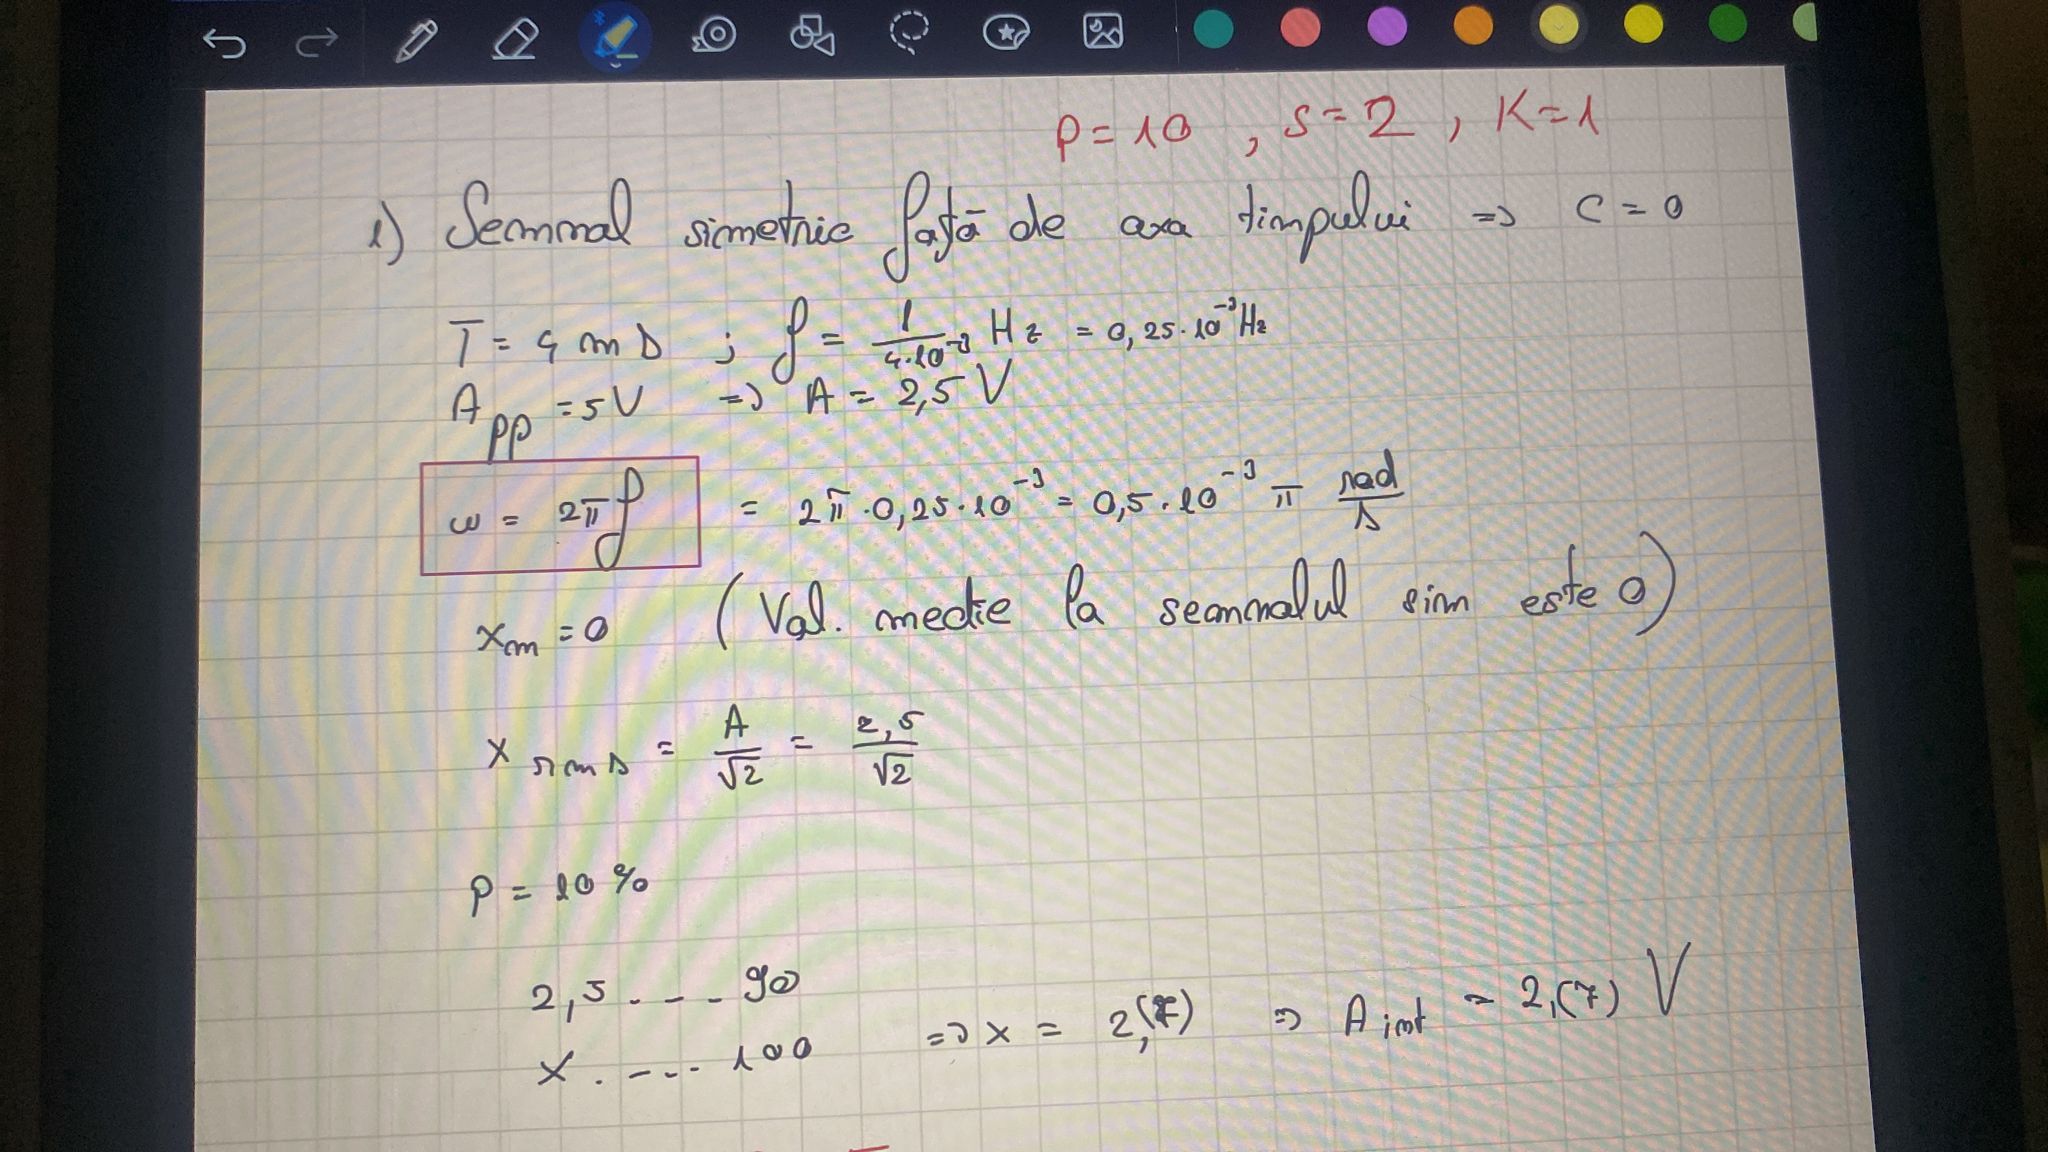 P = 10 , s = 2 , K = 1
1) Semnal simetric față de axa timpului => C = 0
T = 4 ms ; f = 1/(4·10⁻³) Hz = 0,25·10⁻³ Hz
A pp = 5V => A = 2,5 V
ω = 2πf = 2π·0,25·10⁻³ = 0,5·10⁻³ π rad/s
xm = 0 (Val. medie la semnalul sin este 0)
x rms = A/√2 = 2,5/√2
P = 10 %
2,5 . - - - 90
x . - - - - 100 => x = 2,(7) => A int = 2,(7) V